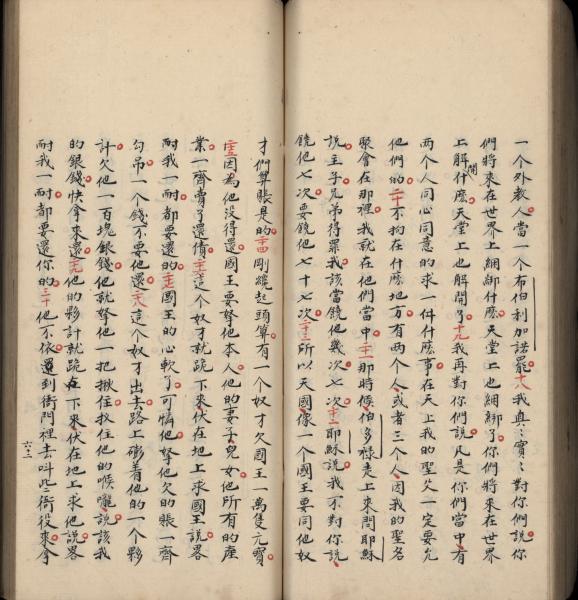 一个外教人當一个布伯利加諾罷十八我真真實實對你們說你
們將來在世界上綑綁什麽天堂上也綑綁了你們將來在世界
上解開什麽天堂上也解開了十九我再對你們說凡是你們當中有
兩个人同心同意的求一件什麽事在天上我的聖父一定要允
他們的二十不拘在什麽地方有兩个人或者三个人因我的聖名
聚會在那裡我就在他們當中二十一那時候伯多祿走上來問耶穌
說主子兄弟得罪我該當饒他幾次七次二十二耶穌說我不對你說
饒他七次要饒他七十七次二十三所以天國像一个國王要同他奴
才們算賬是的二十四剛纔起頭算有一个奴才欠國王一萬隻元寳
二十五因為他沒得還國王要拏他本人他的妻子兒女他所有的產
業一齊賣了還債二十六這个奴才就跪下來伏在地上求國王說畧
耐我一耐都要還的二十七國王的心軟了可憐他拏他欠的賬一齊
勾吊一个錢不要他還二十八這个奴才出去路上碰着他的一个夥
計欠他一百塊銀錢他就拏他一把揪住扠住他的喉嚨說該我
的銀錢快拿來還二十九他的夥計就跪在下來伏在地上求他說畧
耐我一耐都要還你的三十他不依還到衙門裡去叫些衙役來拿